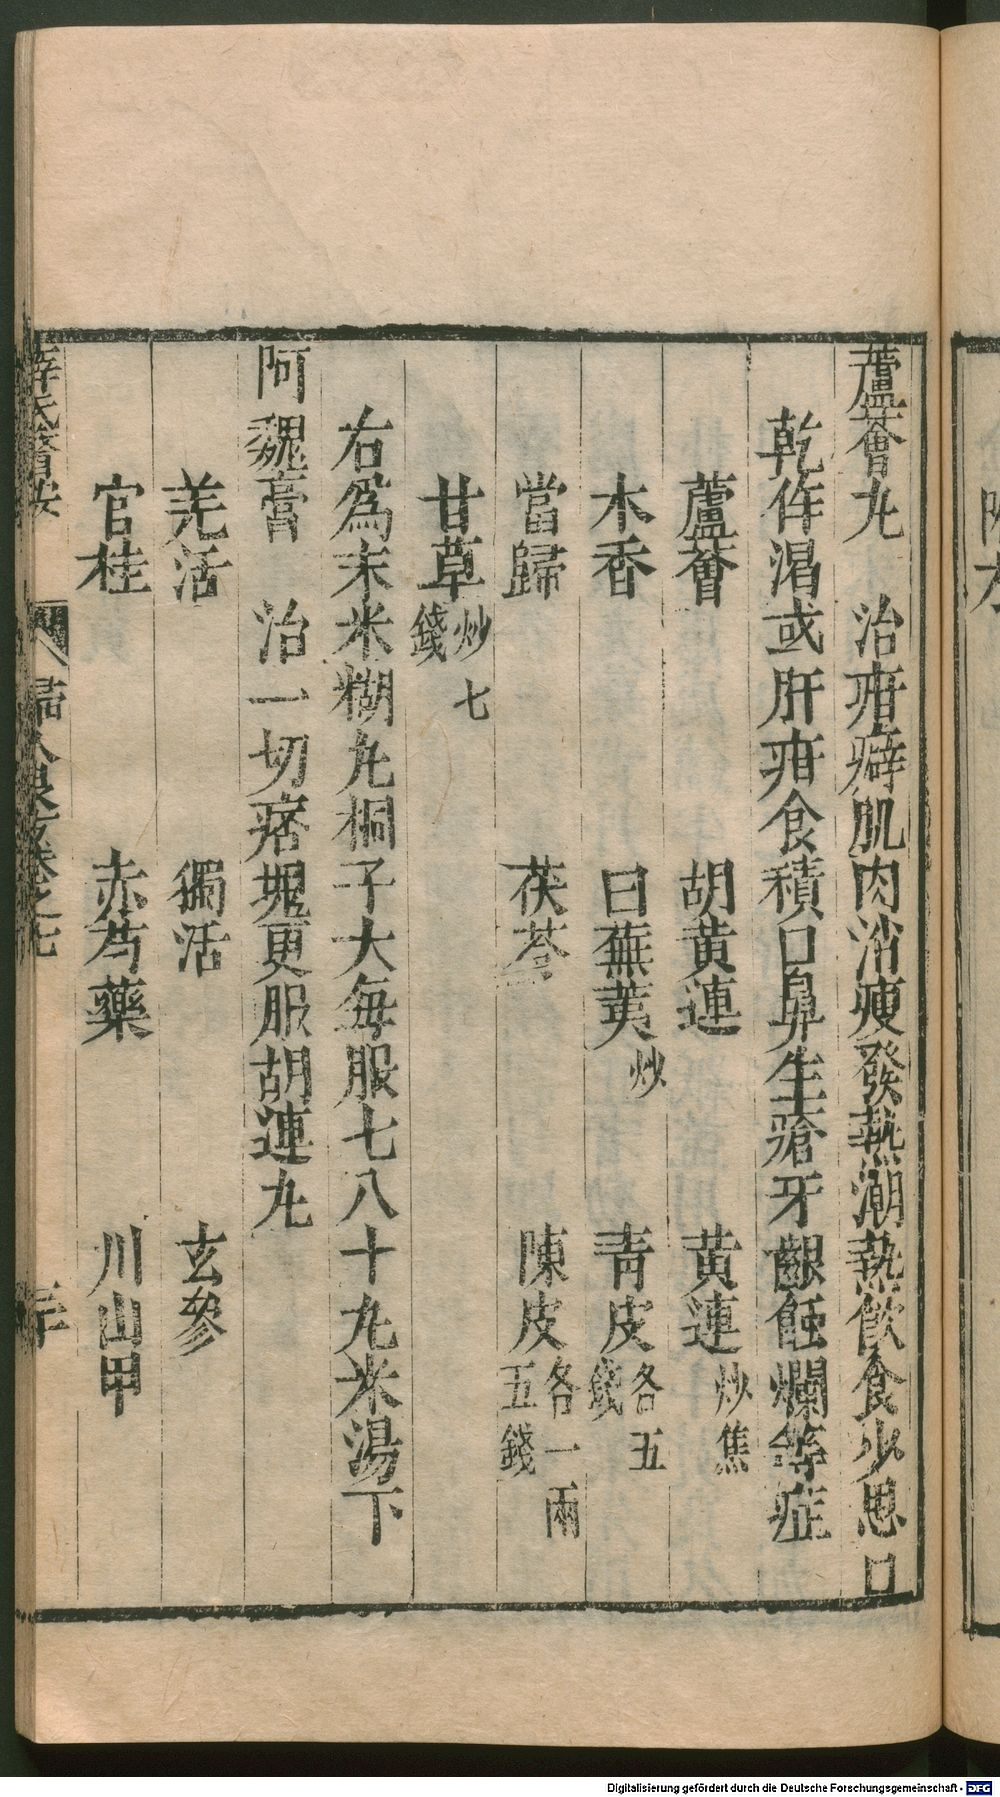 蘆薈丸　治疳癖肌肉消瘦發熱潮熱飲食少思口
乾作渴或肝疳食積口鼻生瘡牙齦蝕爛等症
蘆薈　胡黄連　黄連炒焦
木香　白蕪荑炒　青皮各五錢
當歸　茯苓　陳皮各一兩五錢
甘草炒七錢
右爲末米糊丸桐子大每服七八十丸米湯下
阿魏膏　治一切痞塊更服胡連丸
羌活　獨活　玄參
官桂　赤芍藥　川山甲
薛氏醫按　婦人良方卷之七
Digitalisierung gefördert durch die Deutsche Forschungsgemeinschaft - DFG